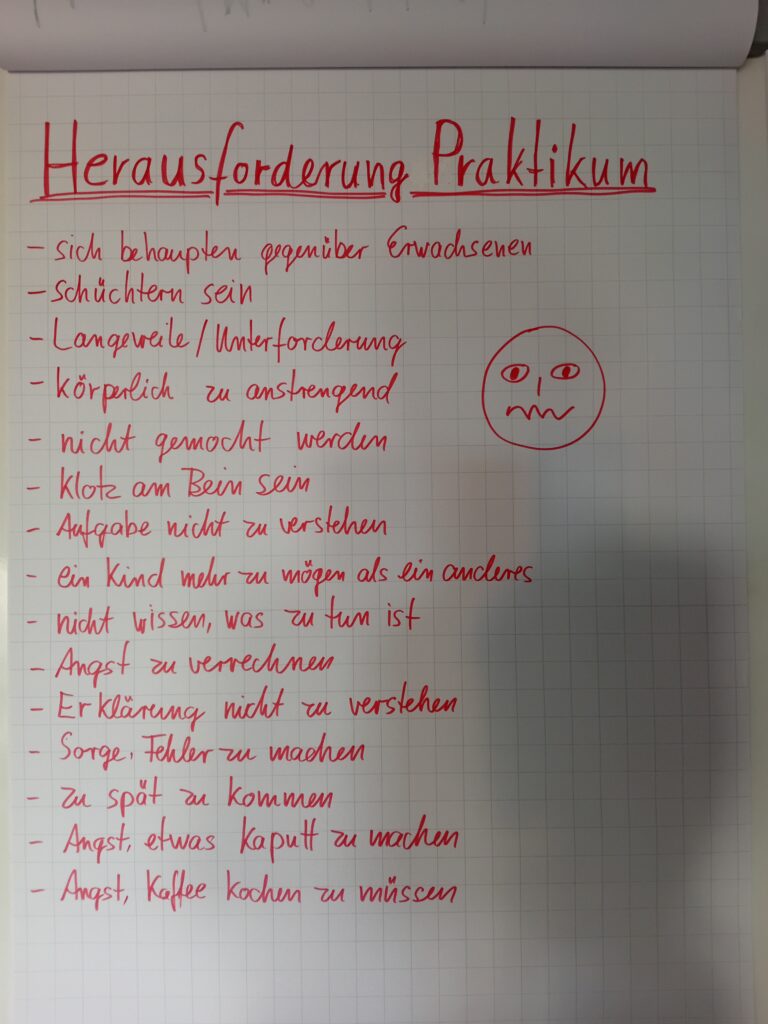 Herausforderung Praktikum
- sich behaupten gegenüber Erwachsenen
- schüchtern sein
- Langeweile/Unterforderung
- körperlich zu anstrengend
- nicht gemocht werden
- Klotz am Bein sein
- Aufgabe nicht zu verstehen
- ein Kind mehr zu mögen als ein anderes
- nicht wissen, was zu tun ist
- Angst zu verrechnen
- Erklärung nicht zu verstehen
- Sorge, Fehler zu machen
- zu spät zu kommen
- Angst, etwas kaputt zu machen
- Angst, Kaffee kochen zu müssen